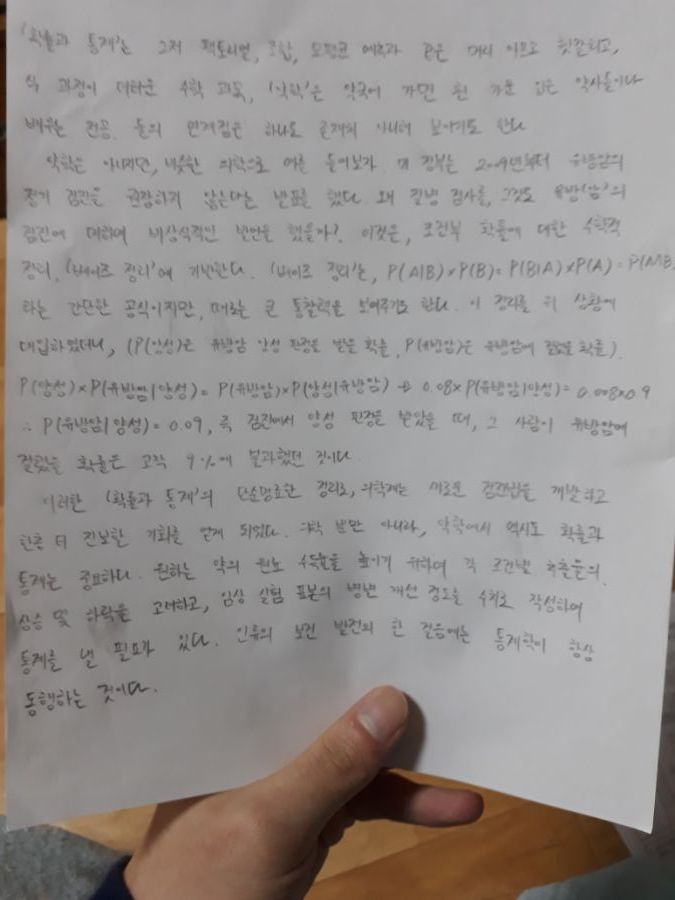 '확률과 통계'는 그저 팩토리얼, 조합, 모평균 예측과 같은 매시 이므로 헷갈리고,
식 과정이 더러운 수학 과목, '약학'은 약국에 가면 흰 가운 입은 약사들이나
배우는 전공. 둘의 연계점은 하나도 존재치 아니해 보이기도 한다
약학은 아니지만, 비슷한 의학으로 예를 들어보자. 미 정부는 2009년부터 유방암의
정기 검진을 권장하지 않는다는 발표를 했다. 왜 질병 검사를, 그것도 유방'암'의
검진에 대하여 비상식적인 발언을 했을까? 이것은, 조건부 확률에 대한 수학적
정리, '베이즈 정리'에 기반한다. '베이즈 정리'는, P(A|B)×P(B)=P(B|A)×P(A)=P(A∩B)
라는 간단한 공식이지만, 때로는 큰 통찰력을 보여주기도 한다. 이 정리를 위 상황에
대입하였더니, (P(양성)은 유방암 양성 판정을 받을 확률, P(유방암)은 유방암에 걸렸을 확률).
P(양성)×P(유방암|양성)= P(유방암)×P(양성|유방암) → 0.08×P(유방암|양성)= 0.008×0.9
∴ P(유방암|양성)= 0.09, 즉 검진에서 양성 판정을 받았을 때, 그 사람이 유방암에
걸렸을 확률은 고작 9%에 불과했던 것이다.
이러한 '확률과 통계'의 단순명료한 정리로, 의학계는 새로운 검진법을 개발하고
한층 더 진보할 기회를 얻게 되었다. 의학 뿐만 아니라, 약학에서 역시도 확률과
통계는 중요하다. 원하는 약의 원료 수득률을 높이기 위하여 각 조건별 추출물의
상승 및 하락을 고려하고, 임상 실험 표본의 병변 개선 정도를 수치로 작성하여
통계를 낼 필요가 있다. 인류의 보건 발전의 한 걸음에는 통계학이 항상
동행하는 것이다.